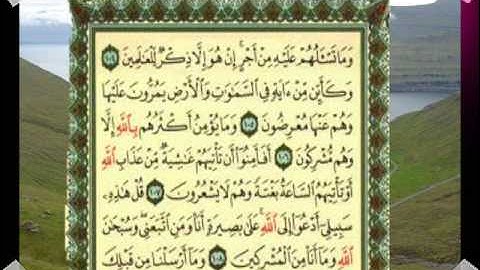 وَمَا تَسْـَٔلُهُمْ عَلَيْهِ مِنْ أَجْرٍ ۚ إِنْ هُوَ إِلَّا ذِكْرٌ لِّلْعَـٰلَمِينَ ١٠٤
وَكَأَيِّن مِّنْ ءَايَةٍ فِى ٱلسَّمَـٰوَٰتِ وَٱلْأَرْضِ يَمُرُّونَ عَلَيْهَا
وَهُمْ عَنْهَا مُعْرِضُونَ ١٠٥ وَمَا يُؤْمِنُ أَكْثَرُهُم بِٱللَّهِ إِلَّا
وَهُم مُّشْرِكُونَ ١٠٦ أَفَأَمِنُوٓا۟ أَن تَأْتِيَهُمْ غَـٰشِيَةٌ مِّنْ عَذَابِ ٱللَّهِ
أَوْ تَأْتِيَهُمُ ٱلسَّاعَةُ بَغْتَةً وَهُمْ لَا يَشْعُرُونَ ١٠٧ قُلْ هَـٰذِهِۦ
سَبِيلِىٓ أَدْعُوٓا۟ إِلَى ٱللَّهِ ۚ عَلَىٰ بَصِيرَةٍ أَنَا۠ وَمَنِ ٱتَّبَعَنِى ۖ وَسُبْحَـٰنَ
ٱللَّهِ وَمَآ أَنَا۠ مِنَ ٱلْمُشْرِكِينَ ١٠٨ وَمَآ أَرْسَلْنَا مِن قَبْلِكَ